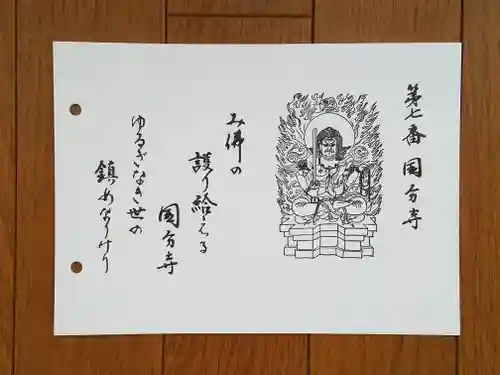 第七番 国分寺
み佛の
護り給へる
国分寺
ゆるぎなき世の
鎮めなりけり